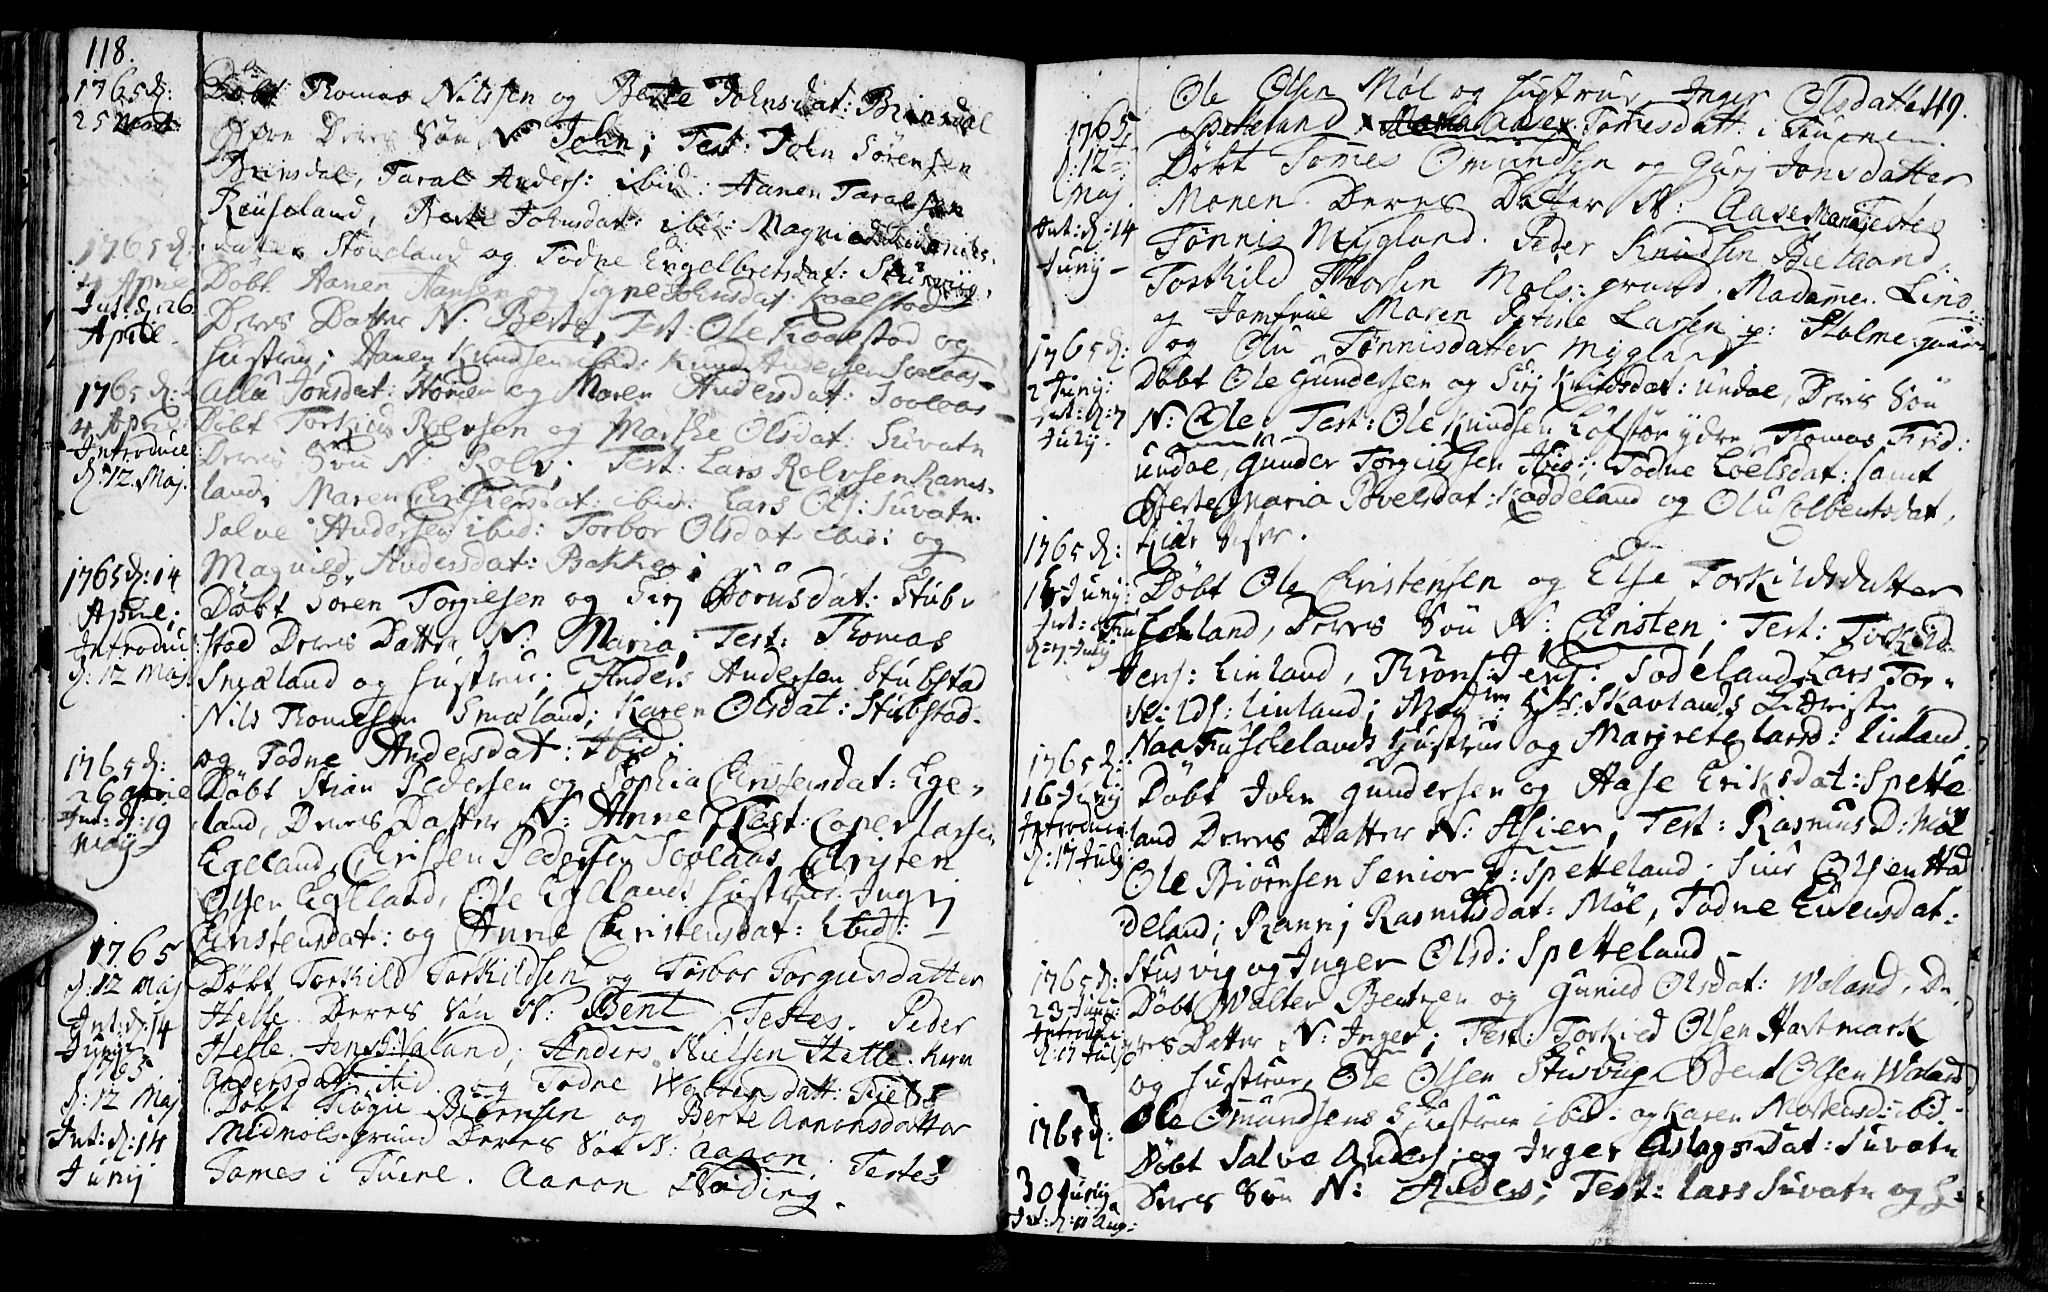 118.
1765 d:
25 Mart:
Døbt Thomas Nilssen og Berte Johnsdat: Brinsdal
Deres Søn N John; Test: John Sørensen
Brinsdal, Taral Anders: ibid: Aanen Taralsen
Reuseland, Berte Johnsdat: ibid: Magnild
datter Stoveland og Todne Engelbretsdat:
1765 d:
4 Aprile
Int: d: 26
April.
Døbt Aanen Hansen og Signe Johnsdat: Koelstad
Deres Datter N: Berte, Test: Ole Koelstod og
Hustru; Aanen Knudsen ibid: Knud Andersen Soelaas
Alla Jonsdat: og Maren Andersdat: Soelaas
1765 d:
4 April
Introduc
d: 12 Maj.
Døbt Torkius Rolvsen og Marthe Olsdat: Suvatn
Deres Søn N: Rolv; Test: Lars Rolvsen Rams-
land, Maren ibid: Lars Ols: Suvatn.
Salve Andersen ibid: Torbor Olsdat ibid: og
Magnild Andersdat: Bakke;
1765 d: 14
April;
Introduc
d: 12 Maj.
Døbt Søren Torgiesen og Sirj Biørnsdat: Stub-
stad Deres Datter N: Maria; Test: Thomas
Smæland og Hustru; Anders Andersen Stubstad
Nils Thomesen Smæland; Karen Olsdat: Stubstad.
og Todne Andersdat: Ibid:
1765 d:
26 Aprie
Int: d: 19
Maij
Døbt Stian Pedersen og Sophia Christensdat: Ege-
land, Deres Datter N: Anne, Test: Casper Larsen
Egeland, Christen Pedersen Soelaas, Christen
Olsen Egeland, Ole Egelands Hustrue Ingrj
Christensdat: og Anne Christensdat: Ibid: -
1765
d: 12 Maj
Int: d: 14
Junij
Døbt Torkild Torkildsen og Torbor Torgusdatter
Helle. Deres Søn N: Bent Testes. Peder
Helle. Jens Valand; Anders Nielsen Helle. Karn
Andersdatt: ibid. og Todne Woltersdatt:
1765
d: 12 Maj
Int: d: 14
Junij
Døbt Biørnsen og Berte Aanonsdatter
Midmols-grund Deres Søn N: Aaron. Testes
Tomes i Tuene. Aaron Holding.
119.
Ole Olsen Møl og Hustrue, Inger Olsdatter
Spetteland x Tomesdatt: i Tuene
1765
d: 12
Maj.
Int: d: 14
Junij -
Døbt Tomes Omundsen og Gurj Jonsdatter
Monen. Deres Datter N: Aase Maria Testes
Tønnis Mygland. Peder Knudsen Bieland,
Torkild Thorsen Mols: grund. Madame. Lind
og Jomfrue Maren Stine Larsen p: Holme-gaard
og Olu Tønnisdatter Mygland
1765 d:
2 Junij:
Int: d: 7
Julij.
Døbt Ole Gundersen og Sirj Knudsdat: Undal, Deres Søn
N: Ole Test: Ole Knudsen Løfstør ydre, Thomas Frid:
Undal, Gunder Torgiussen Ibid; Todne Loelsdat: samt
Berte Maria Povelsdat: Kaddeland og Olu Colbentsdat,
1765 d:
16 Junij:
Int:
d: 7 Julij
Døbt Ole Christensen og Else Torkildsdatter
Linland, Deres Søn N: Christen; Test: Torkild
Jens: Linland, Thron Jens: Sodeland, Lars Tor-
kilds: Linland; Mad:m Hr: Skavlands
Hustrue og Margrete Larsd: Linland.
1765 d:
16 Junij
Introduc:
d: 17 Julj
Døbt John Gundersen og Aase Eriksdat: Spette
land Deres Datter N: Asier, Test: Rasmus D: Møl
Ole Biørnsen Senior p: Spetteland, Siur Olsen Had
deland; Rannj Rasmusdat: Møl, Todne Evensdat:
Stusvig og Inger Olsd: Spetteland -
1765 d:
23 Junii
Introduc:
d: 17 Julj
Døbt Wolter Bentzen og Gunild Olsdat: Woland, De
res Datter N: Inger; Test: Torkild Olsen Hartmark
og Hustrue, Ole Olsen Stusvig, Bent Olsen Woland
Ole Omundsens Hustrue ibid. og Karen Mortensd: ibid.
1765 d:
30 Junij
Int: d: 11 Aug:
Døbt Salve Anders: og Inger Aslags Dat: Suvatn
Deres Søn N: Anders; Test: Lars Suvatn og H: